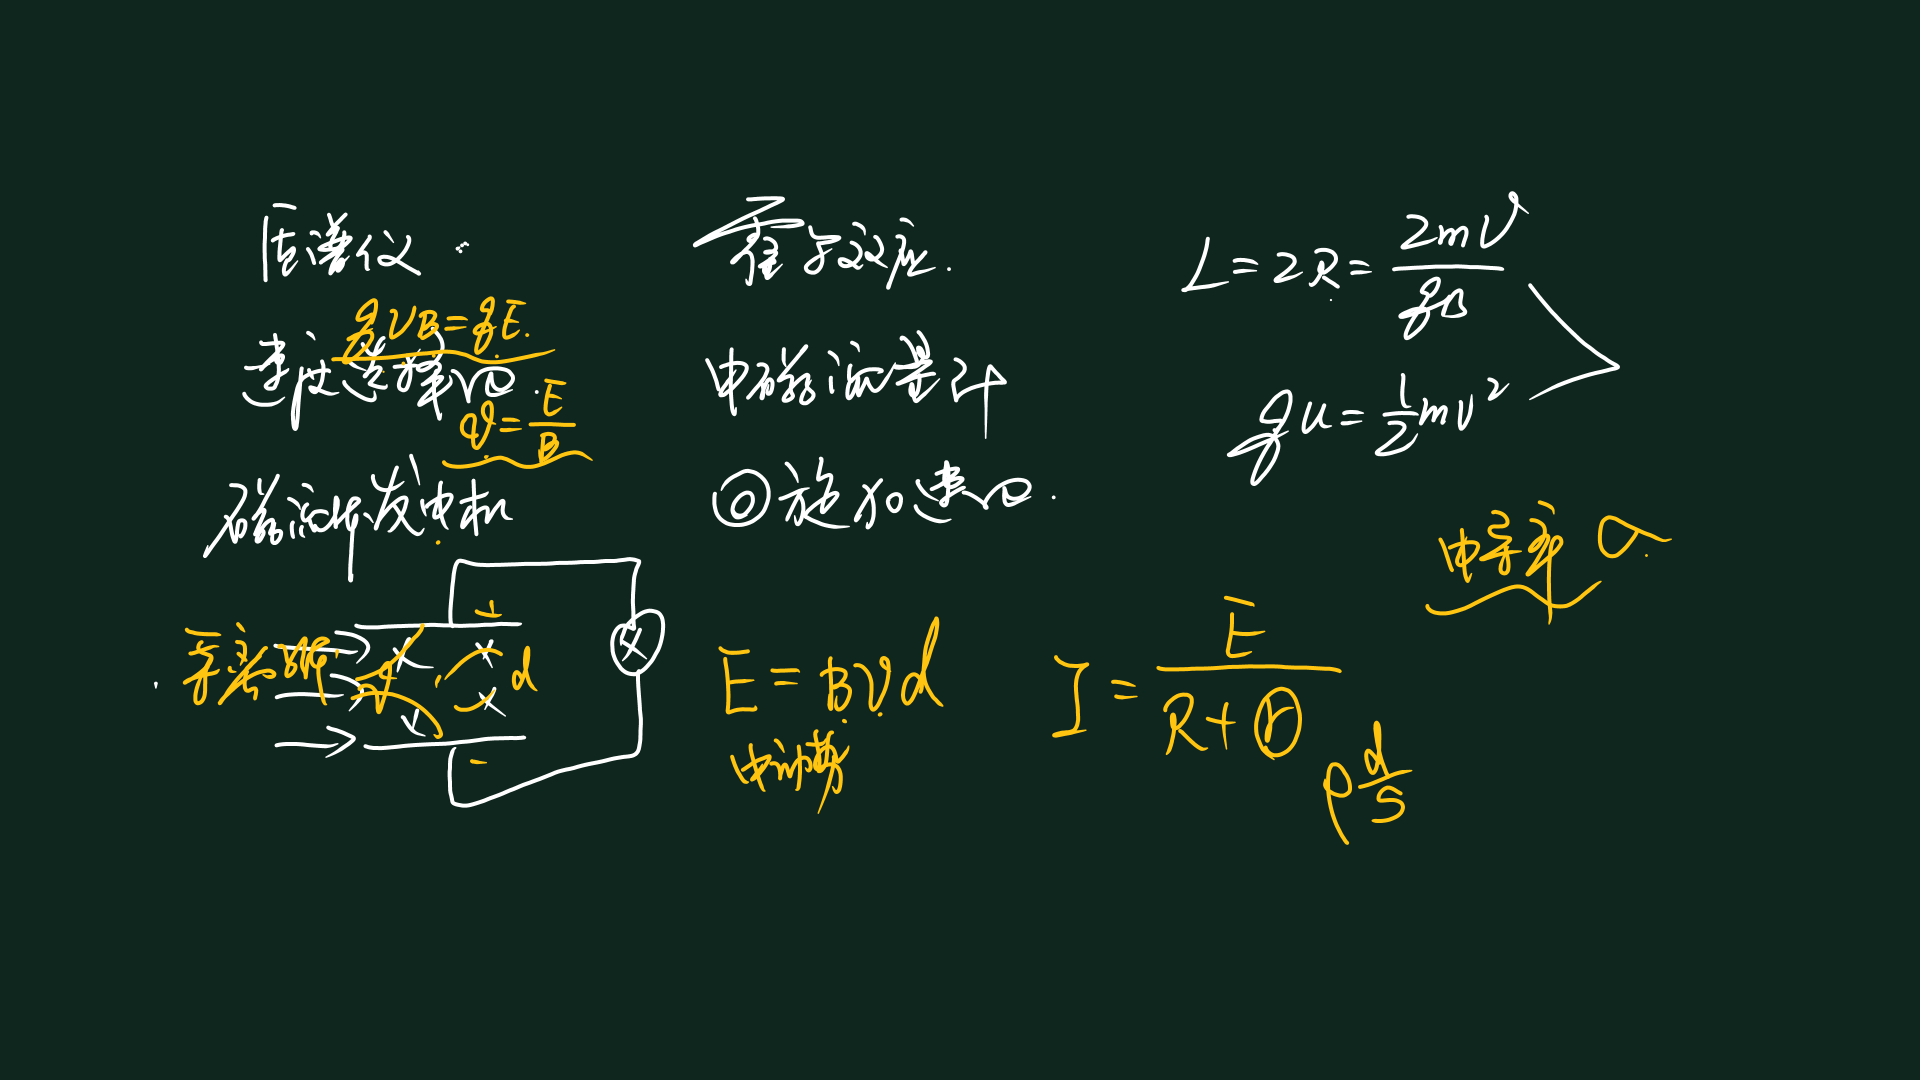 质谱仪
qvB=qE.
速度选择器
v=E/B
磁流体发电机
等离子体
+
d
-
霍尔效应.
电磁流量计
回旋加速器.
L=2R=2mv/qB
qu=1/2mv²
电导率 σ
E=Bvd
电动势
I=E/(R+r)
ρd/S